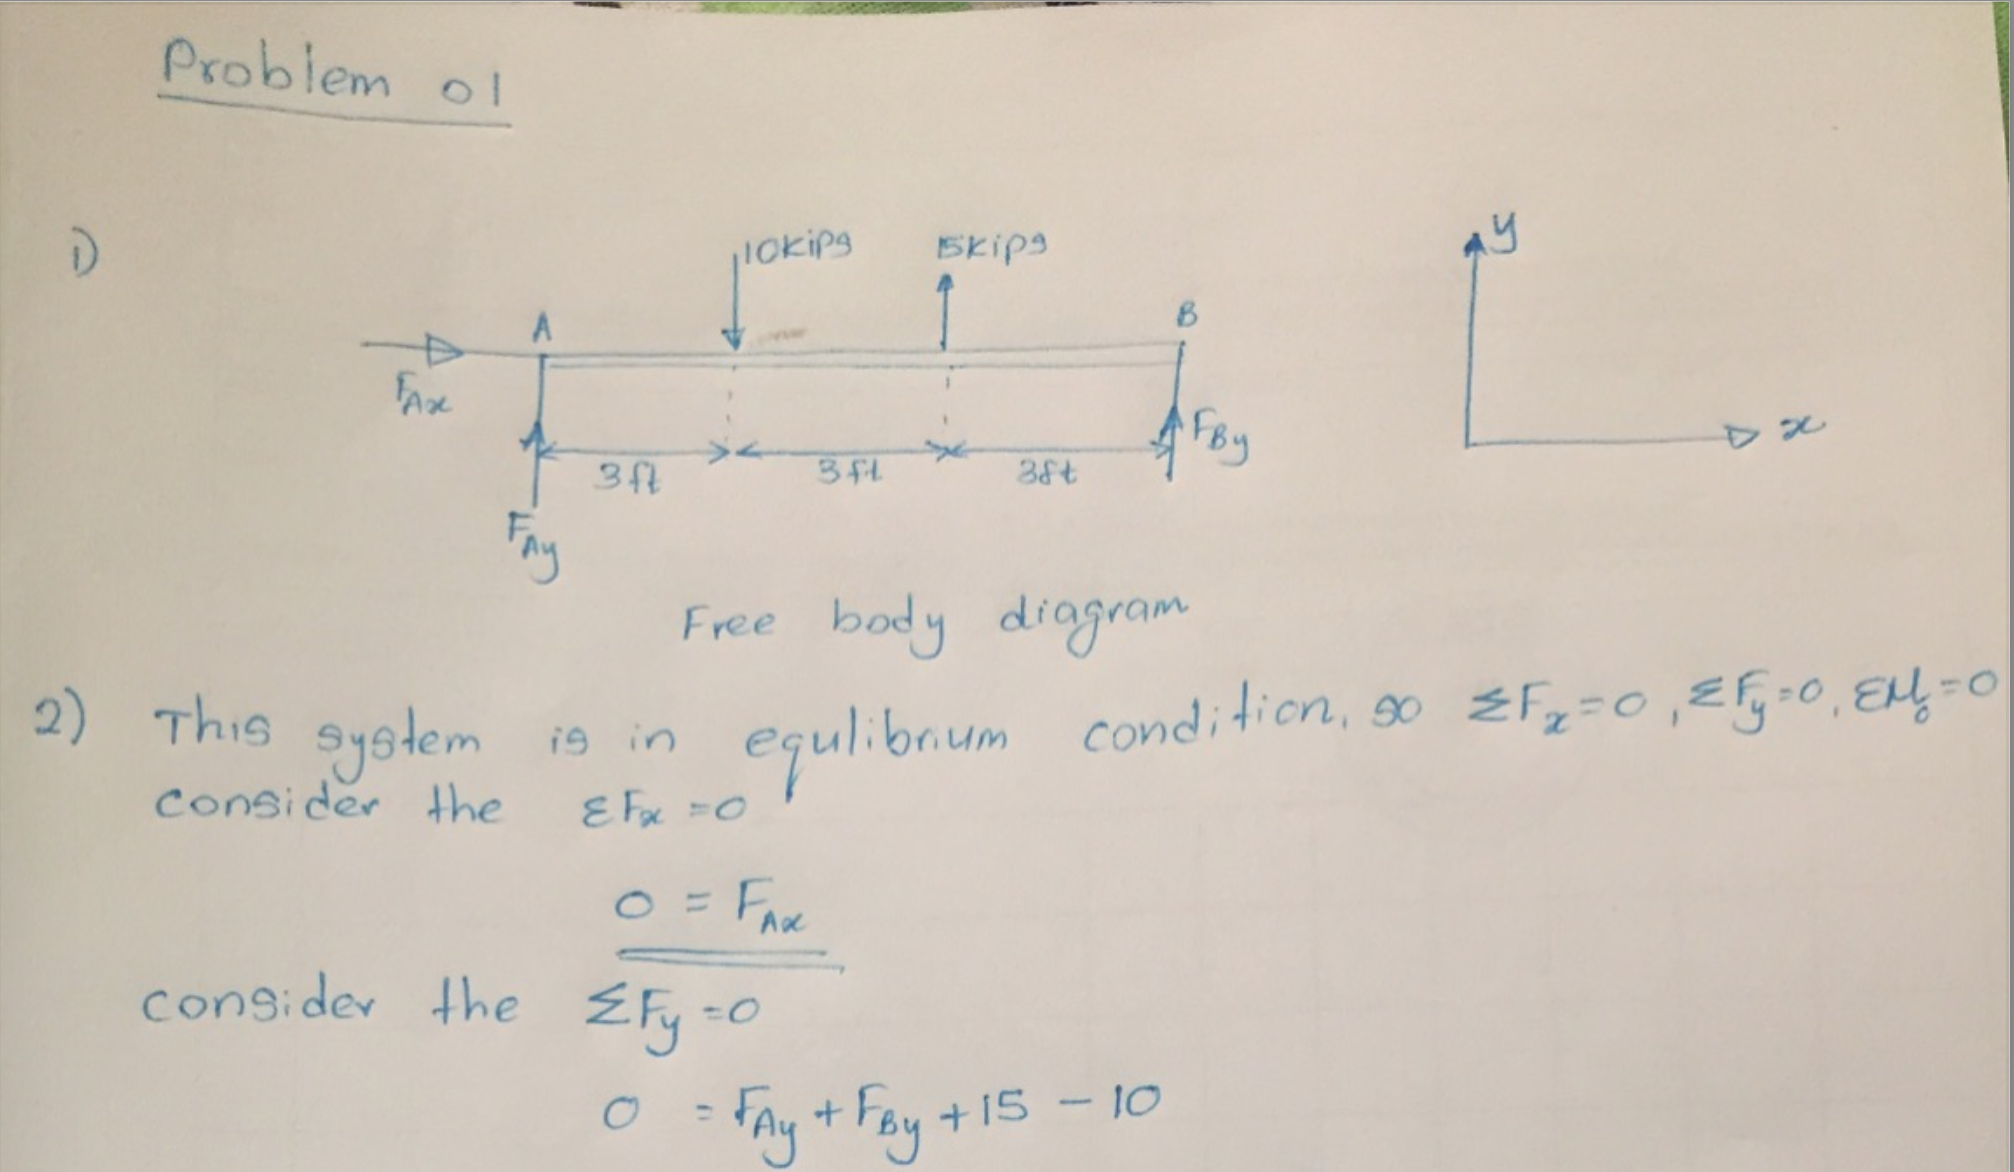 Problem 01
1)
10kips 15kips
y
A B
F_Ax
F_By
x
3ft 3ft 3ft
F_Ay
Free body diagram
2) This system is in equlibrium condition, so ΣF_x=0, ΣF_y=0, ΣM_o=0
consider the ΣF_x=0
0 = F_Ax
consider the ΣF_y=0
0 = F_Ay + F_By + 15 - 10